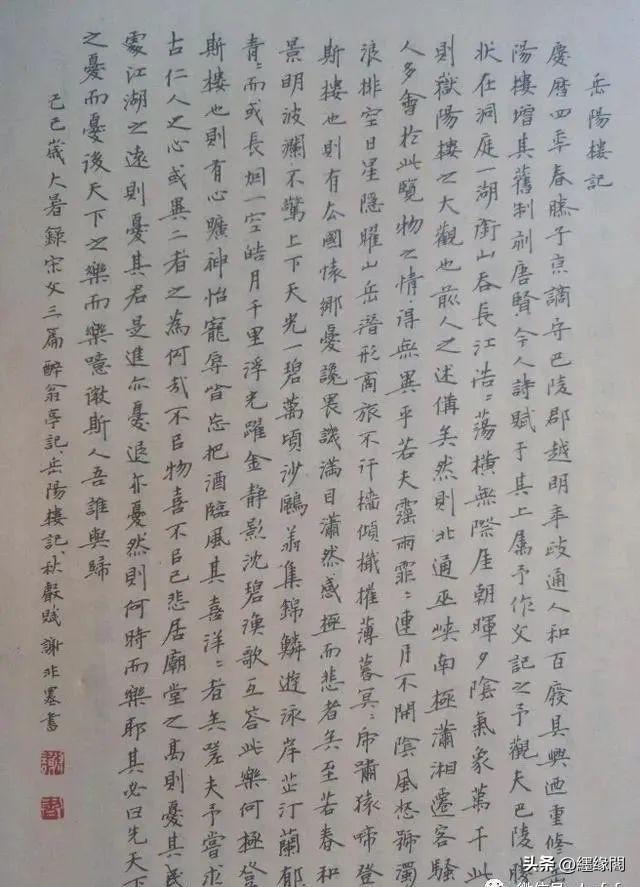 岳陽樓記
慶曆四年春滕子京謫守巴陵郡越明年政通人和百廢具興迺重修岳
陽樓增其舊制刻唐賢今人詩賦于其上屬予作文記之予觀夫巴陵勝
狀在洞庭一湖銜山吞長江浩〻蕩橫無際涯朝暉夕陰氣象萬千此
則嶽陽樓之大觀也前人之述備矣然則北通巫峽南極瀟湘遷客騷
人多會於此覽物之情得無異乎若夫霪雨霏〻連月不開陰風怒號濁
浪排空日星隱曜山岳潛形商旅不行檣傾檝摧薄暮冥〻虎嘯猿啼登
斯樓也則有去國懷鄉憂讒畏譏滿目瀟然感極而悲者矣至若春和
景明波瀾不驚上下天光一碧萬頃沙鷗翔集錦鱗遊泳岸芷汀蘭郁
青〻而或長烟一空皓月千里浮光躍金静影沈碧漁歌互答此樂何極登
斯樓也則有心曠神怡寵辱皆忘把酒臨風其喜洋〻者矣嗟夫予嘗求
古仁人之心或異二者之為何哉不以物喜不以己悲居廟堂之高則憂其民
處江湖之遠則憂其君是進亦憂退亦憂然則何時而樂耶其必曰先天下
之憂而憂後天下之樂而樂噫微斯人吾誰與歸
己巳歲大暑錄宋文三篇醉翁亭記、岳陽樓記、秋聲賦 謝非墨書
头条 @纆缘閣